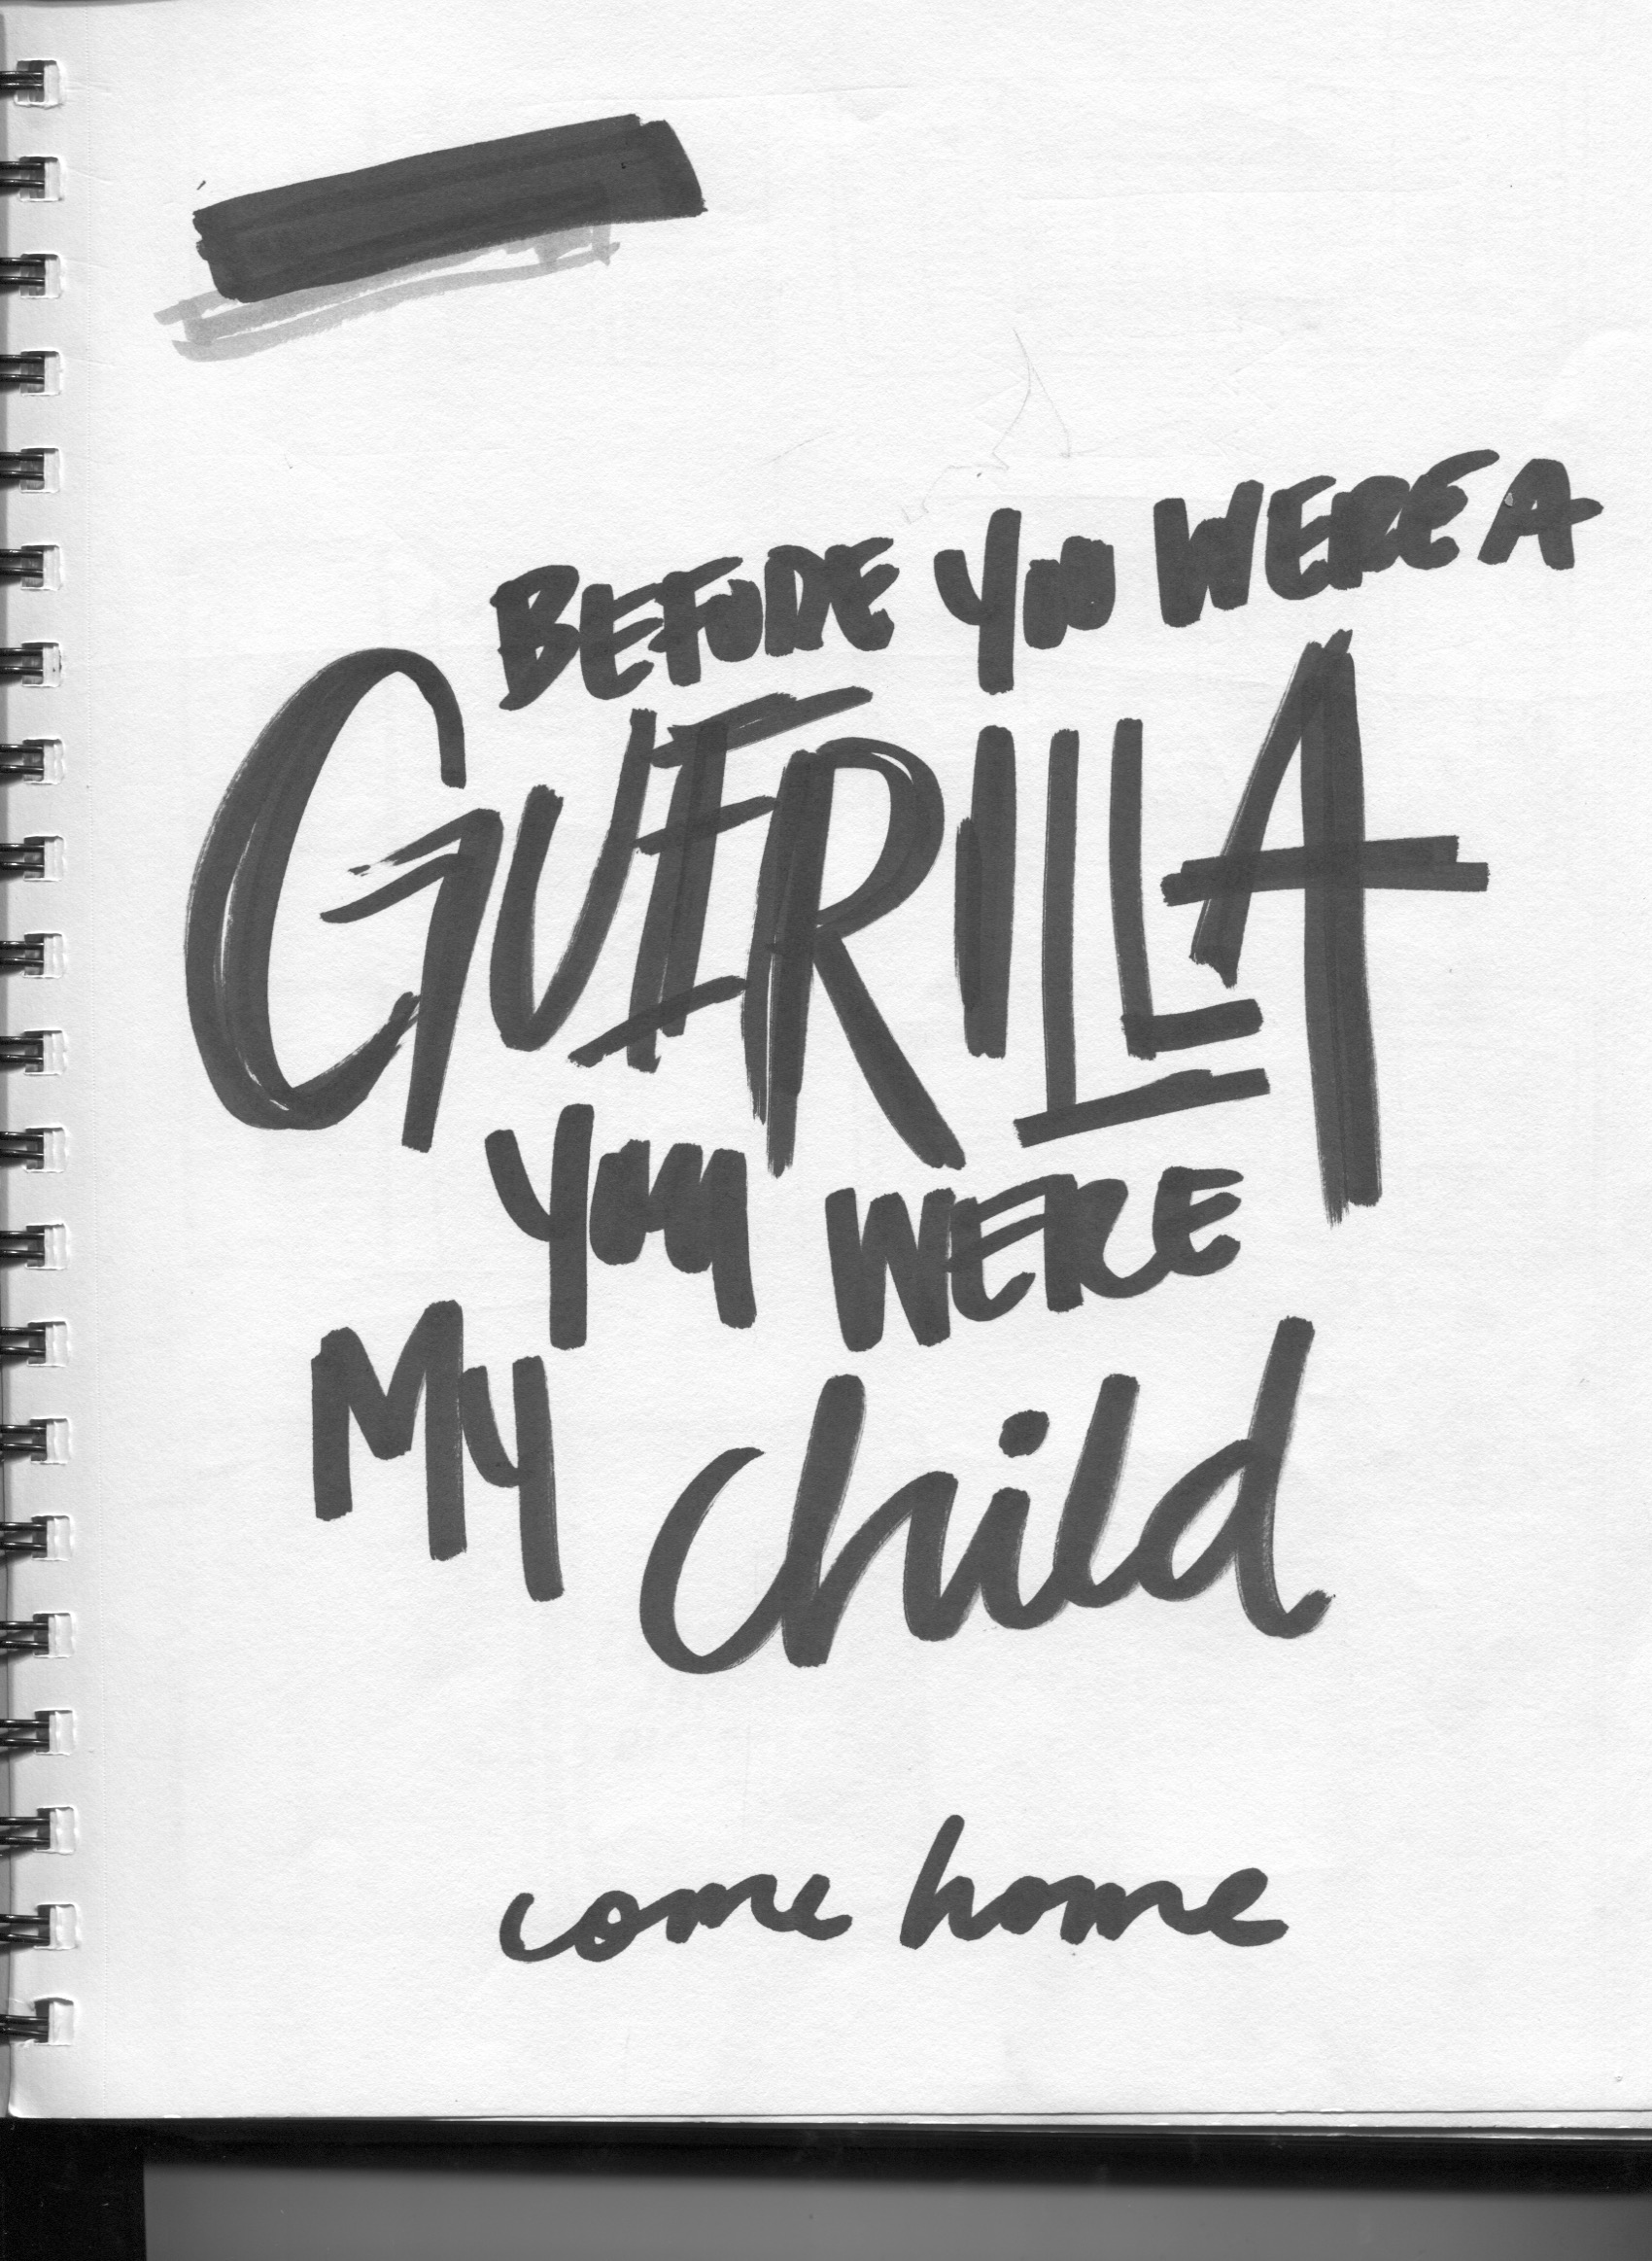 BEFORE YOU WERE A
GUERILLA
YOU WERE
MY child
come home